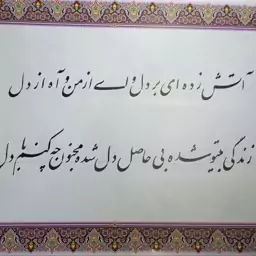 آتش زده ای بر دل و لے از من و آه از دل
زندگی بیتو شده بی حاصل دل شده مجنون چه کنم با دل